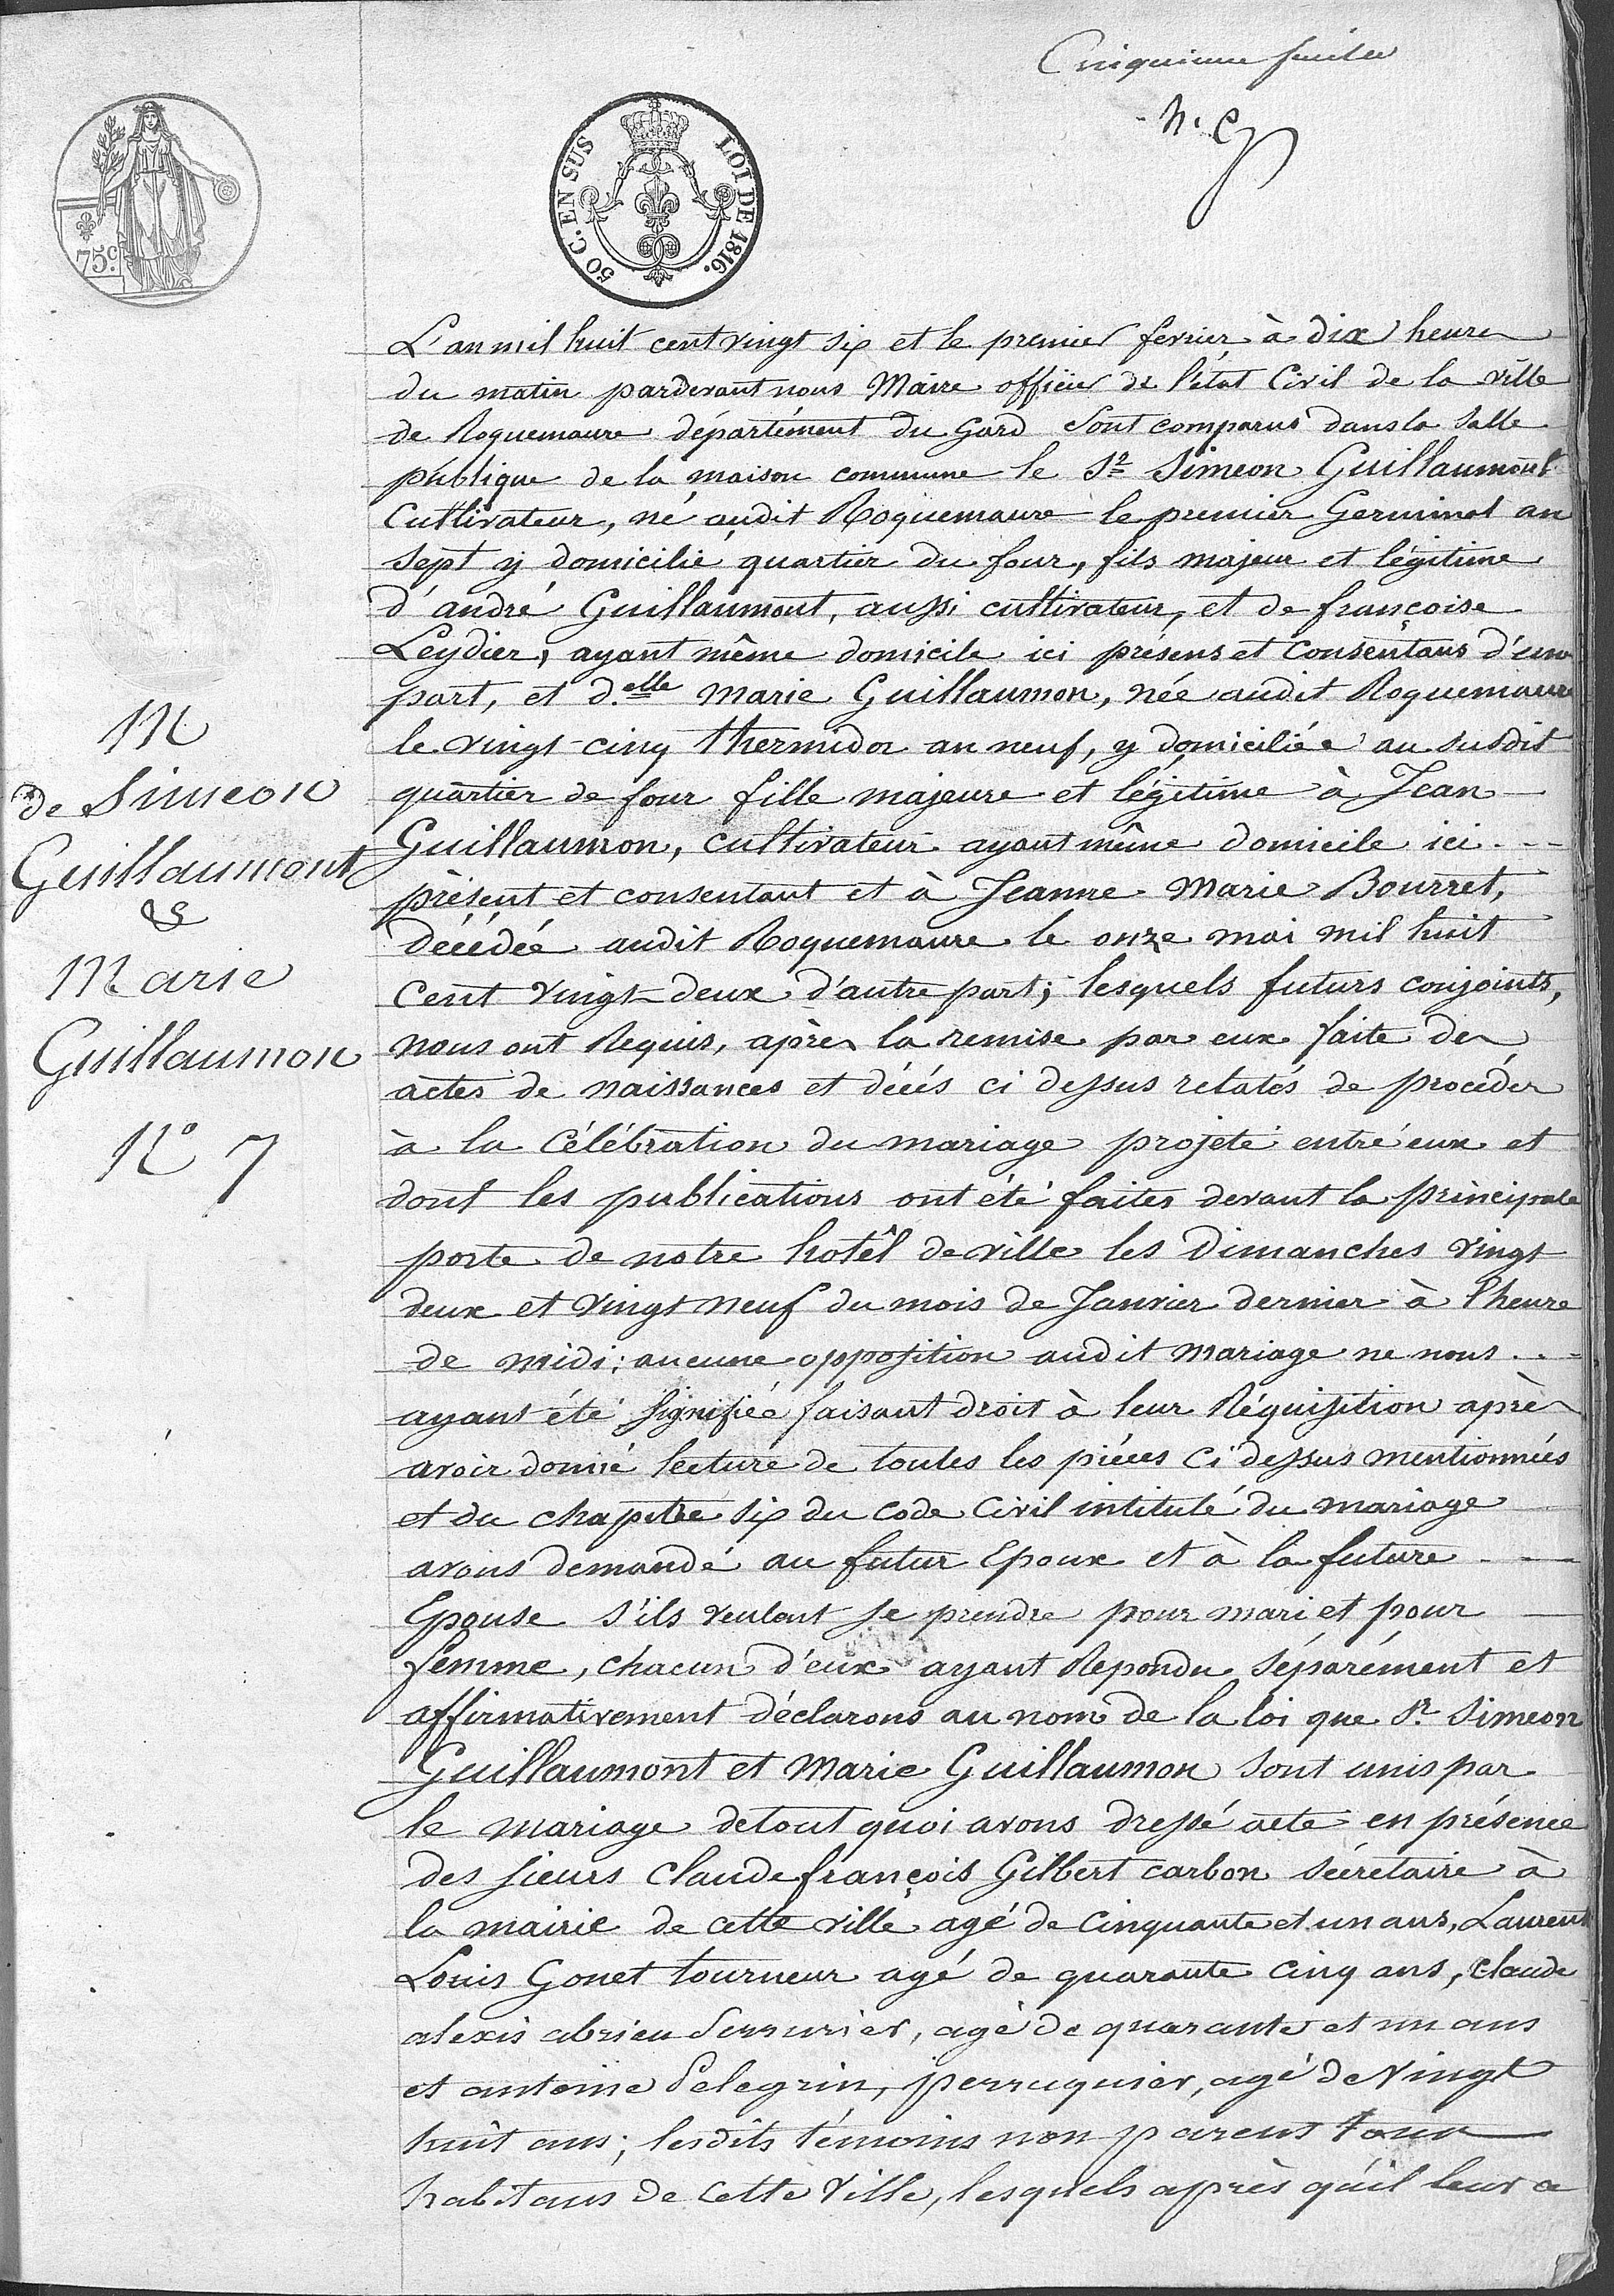 Cinquième feuille
N. C
75 c.
50 C. EN SUS LOI DE 1816.
M
de Simeon
Guillaumont
&
Marie
Guillaumon
N° 7
L'an mil huit cent vingt six et le premier fevrier à dix heures
du matin pardevant nous Maire officier de l'état Civil de la ville
de Roquemaure département du Gard Sont comparus dans la Salle
publique de la maison commune le Sr Simeon Guillaumont
Cultivateur, né audit Roquemaure le premier Germinal an
sept y domicilié quartier du four, fils majeur et légitime
d'andré Guillaumont, aussi cultivateur, et de françoise
Leydier, ayant même domicile ici présens et Consentans d'une
part, et d.elle Marie Guillaumon, née audit Roquemaure
le vingt-cinq thermidor an neuf, y domiciliée au susdit
quartier de four fille majeure et légitime à Jean
Guillaumon, cultivateur ayant même domicile ici
présent et consentant et à Jeanne Marie Bourret,
décédée audit Roquemaure le onze mai mil huit
Cent vingt-deux d'autre part; lesquels futurs conjoints,
nous ont Requis, après la remise par eux faite des
actes de naissances et décés ci dessus relatés de procéder
à la Célébration du mariage projeté entre eux et
dont les publications ont été faites devant la principale
porte de notre hotêl de ville les Dimanches vingt
deux et vingt neuf du mois de Janvier dernier à l'heure
de midi; aucune opposition audit mariage ne nous
ayant été signifiée faisant droit à leur Réquisition après
avoir donné lecture de toutes les piéces Ci dessus mentionnées
et du chapitre six du code Civil intitulé du mariage
avons demandé au futur Epoux et à la future
Epouse s'ils veulent se prendre pour mari et pour
femme, chacun d'eux ayant Repondu séparément et
affirmativement déclarons au nom de la loi que Sr Simeon
Guillaumont et Marie Guillaumon sont unis par
le mariage detout quoi avons dressé acte en présence
des sieurs Claude françois Gilbert carbon sécretaire à
la mairie de cette ville agé de Cinquante et un ans, Laurent
Louis Gonet tourneur agé de quarante cinq ans, Claude
alexis abrieu Serrurier, agé de quarante et un ans
et antoine Pelegrin, perruquier, agé de Vingt
huit ans; lesdits témoins non parens tous
habitans de Cette Ville, lesquels après qu'il leur a